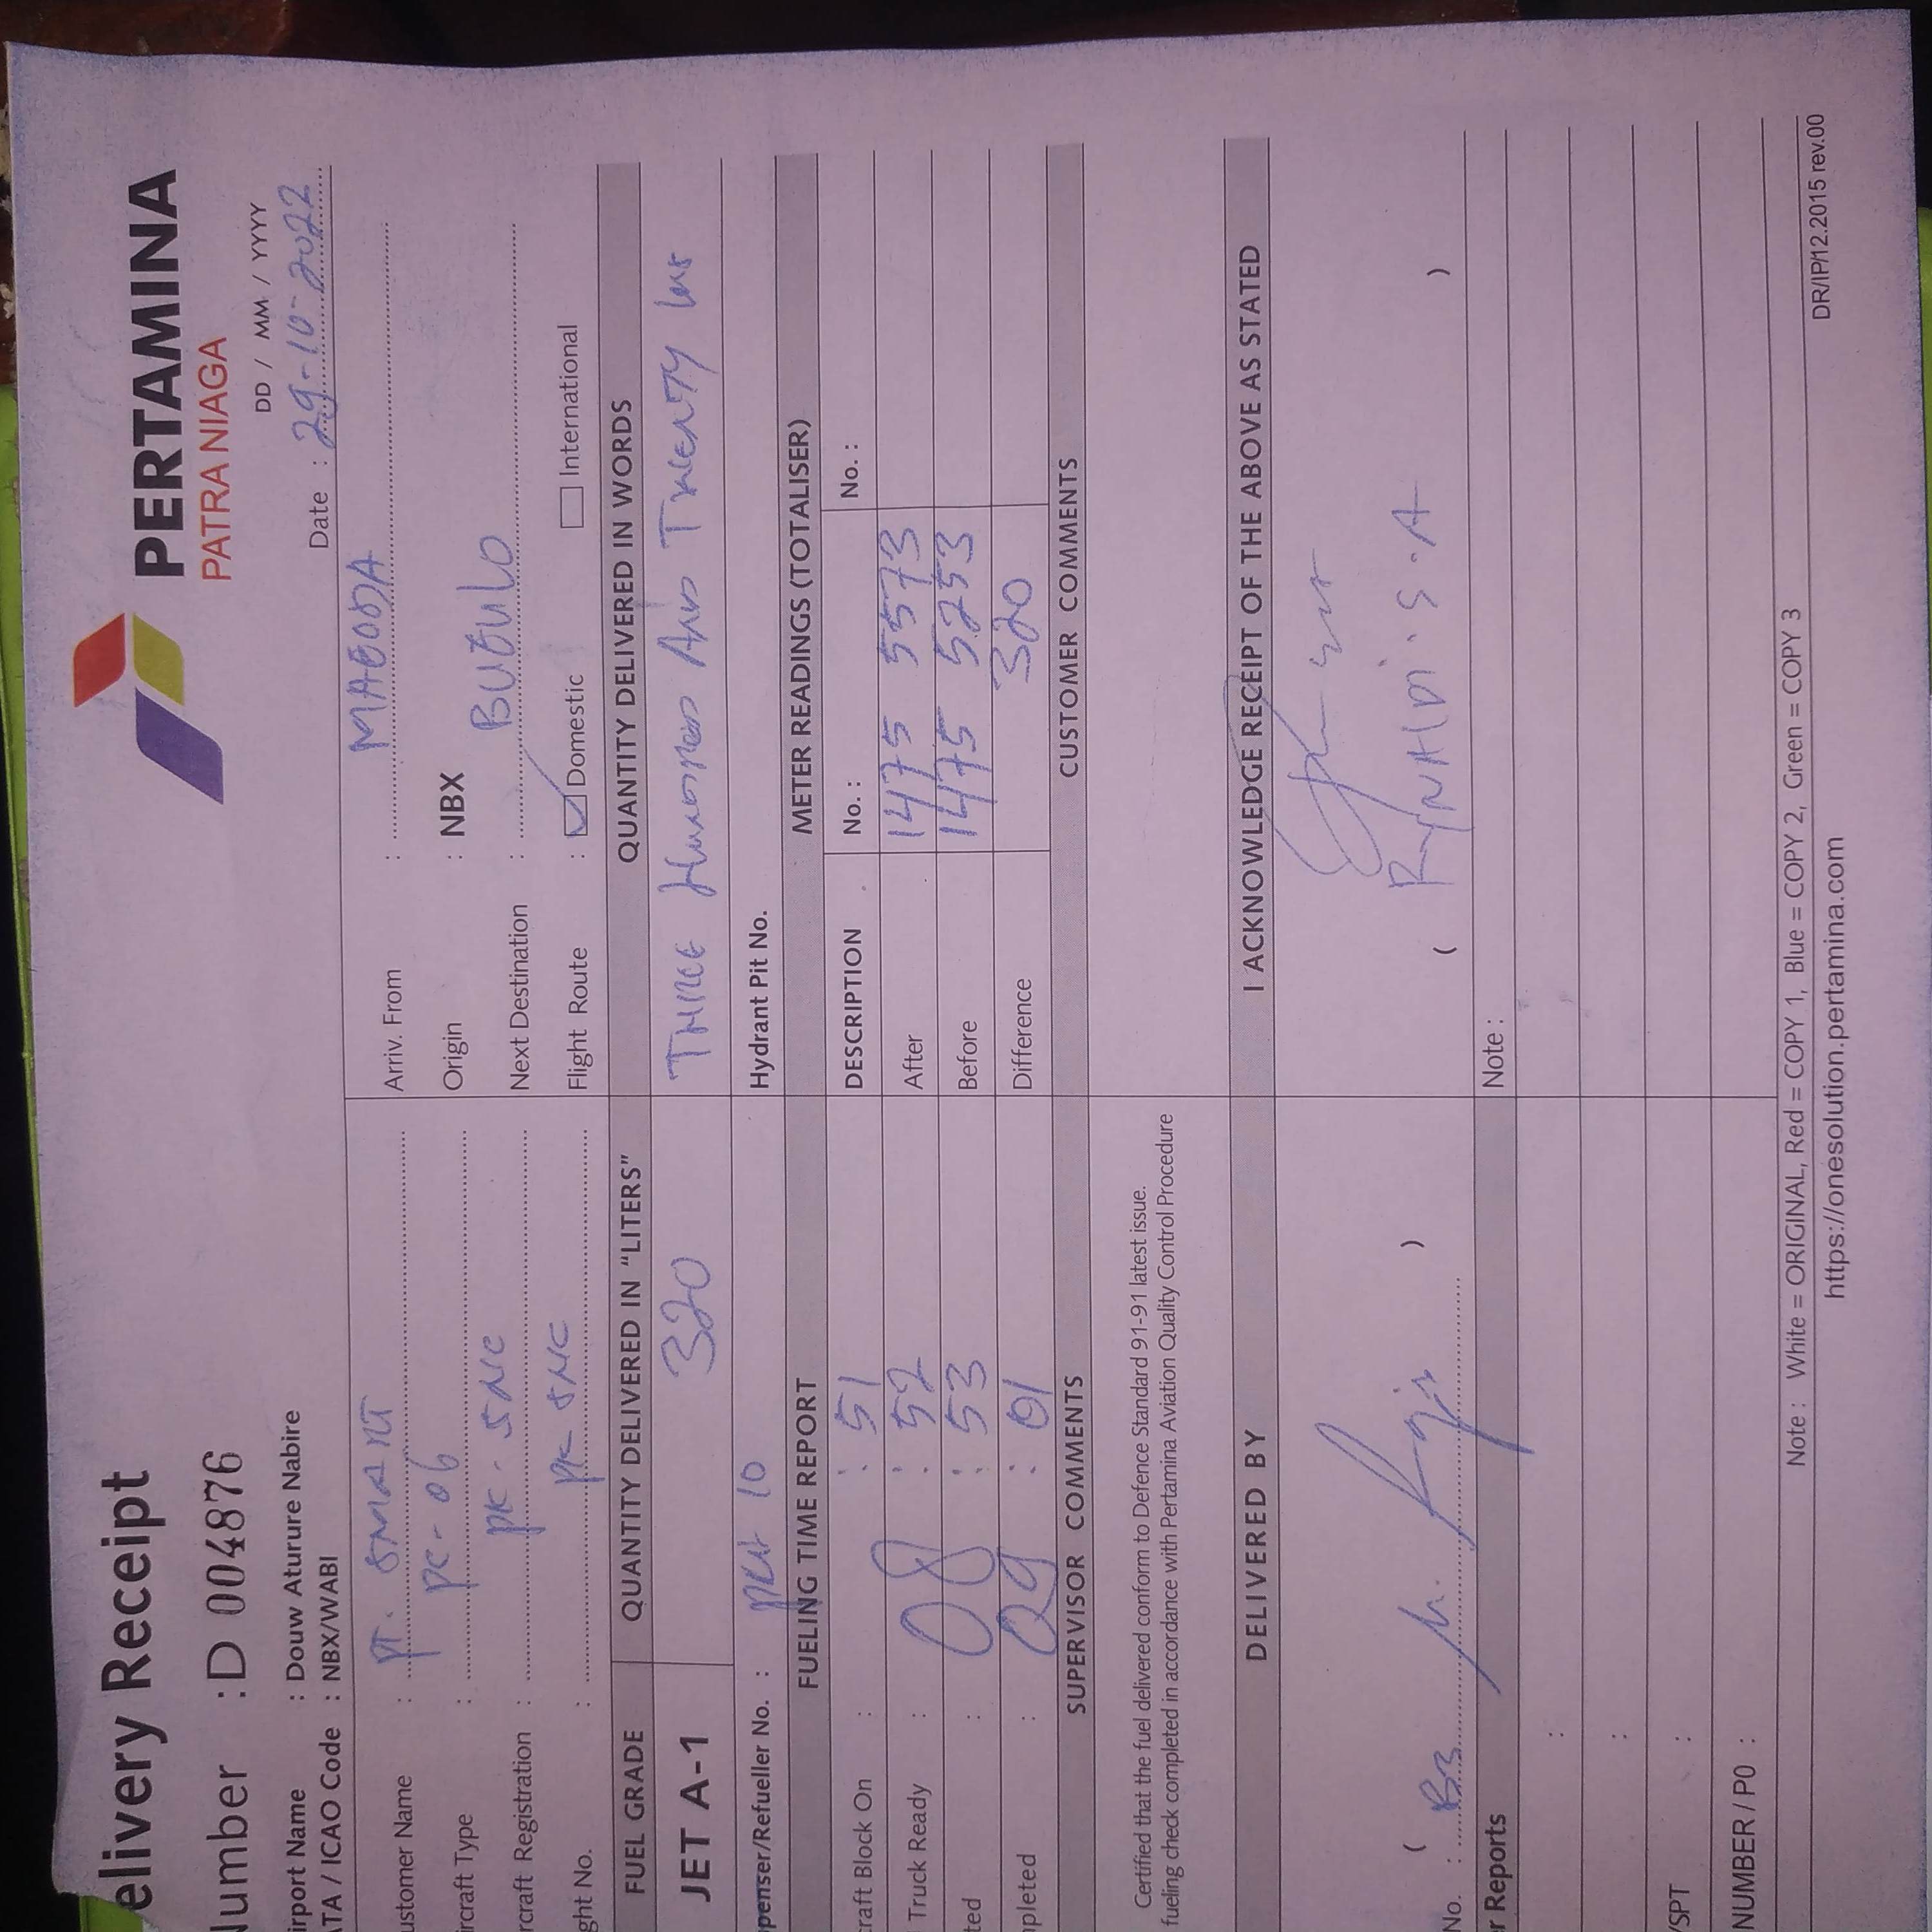 elivery Receipt
PERTAMINA
PATRA NIAGA
Number : D 004876
DD / MM / YYYY
Date : 29-10-2022
irport Name : Douw Aturure Nabire
ATA / ICAO Code : NBX/WABI
ustomer Name : PT. SMART
Arriv. From :
ircraft Type : PC-06
Origin : NBX
rcraft Registration : PK-SNC
Next Destination :
ght No. : PK SNC
Flight Route : Domestic International
FUEL GRADE
QUANTITY DELIVERED IN "LITERS"
QUANTITY DELIVERED IN WORDS
JET A-1
320
THREE HUNDRED AND TWENTY
penser/Refueller No. : 10
Hydrant Pit No.
FUELING TIME REPORT
METER READINGS (TOTALISER)
DESCRIPTION
No. :
No. :
craft Block On : : 51
Truck Ready : 08 : 52
ted : : 53
pleted : 09 : 01
After 1475 5573
Before 1475 5253
Difference 320
SUPERVISOR COMMENTS
CUSTOMER COMMENTS
Certified that the fuel delivered conform to Defence Standard 91-91 latest issue.
fueling check completed in accordance with Pertamina Aviation Quality Control Procedure
DELIVERED BY
I ACKNOWLEDGE RECEIPT OF THE ABOVE AS STATED
( )
( )
No. :
r Reports
Note :
:
:
/SPT :
NUMBER / P0 :
Note : White = ORIGINAL, Red = COPY 1, Blue = COPY 2, Green = COPY 3
DR/IP/12.2015 rev.00
https://onesolution.pertamina.com